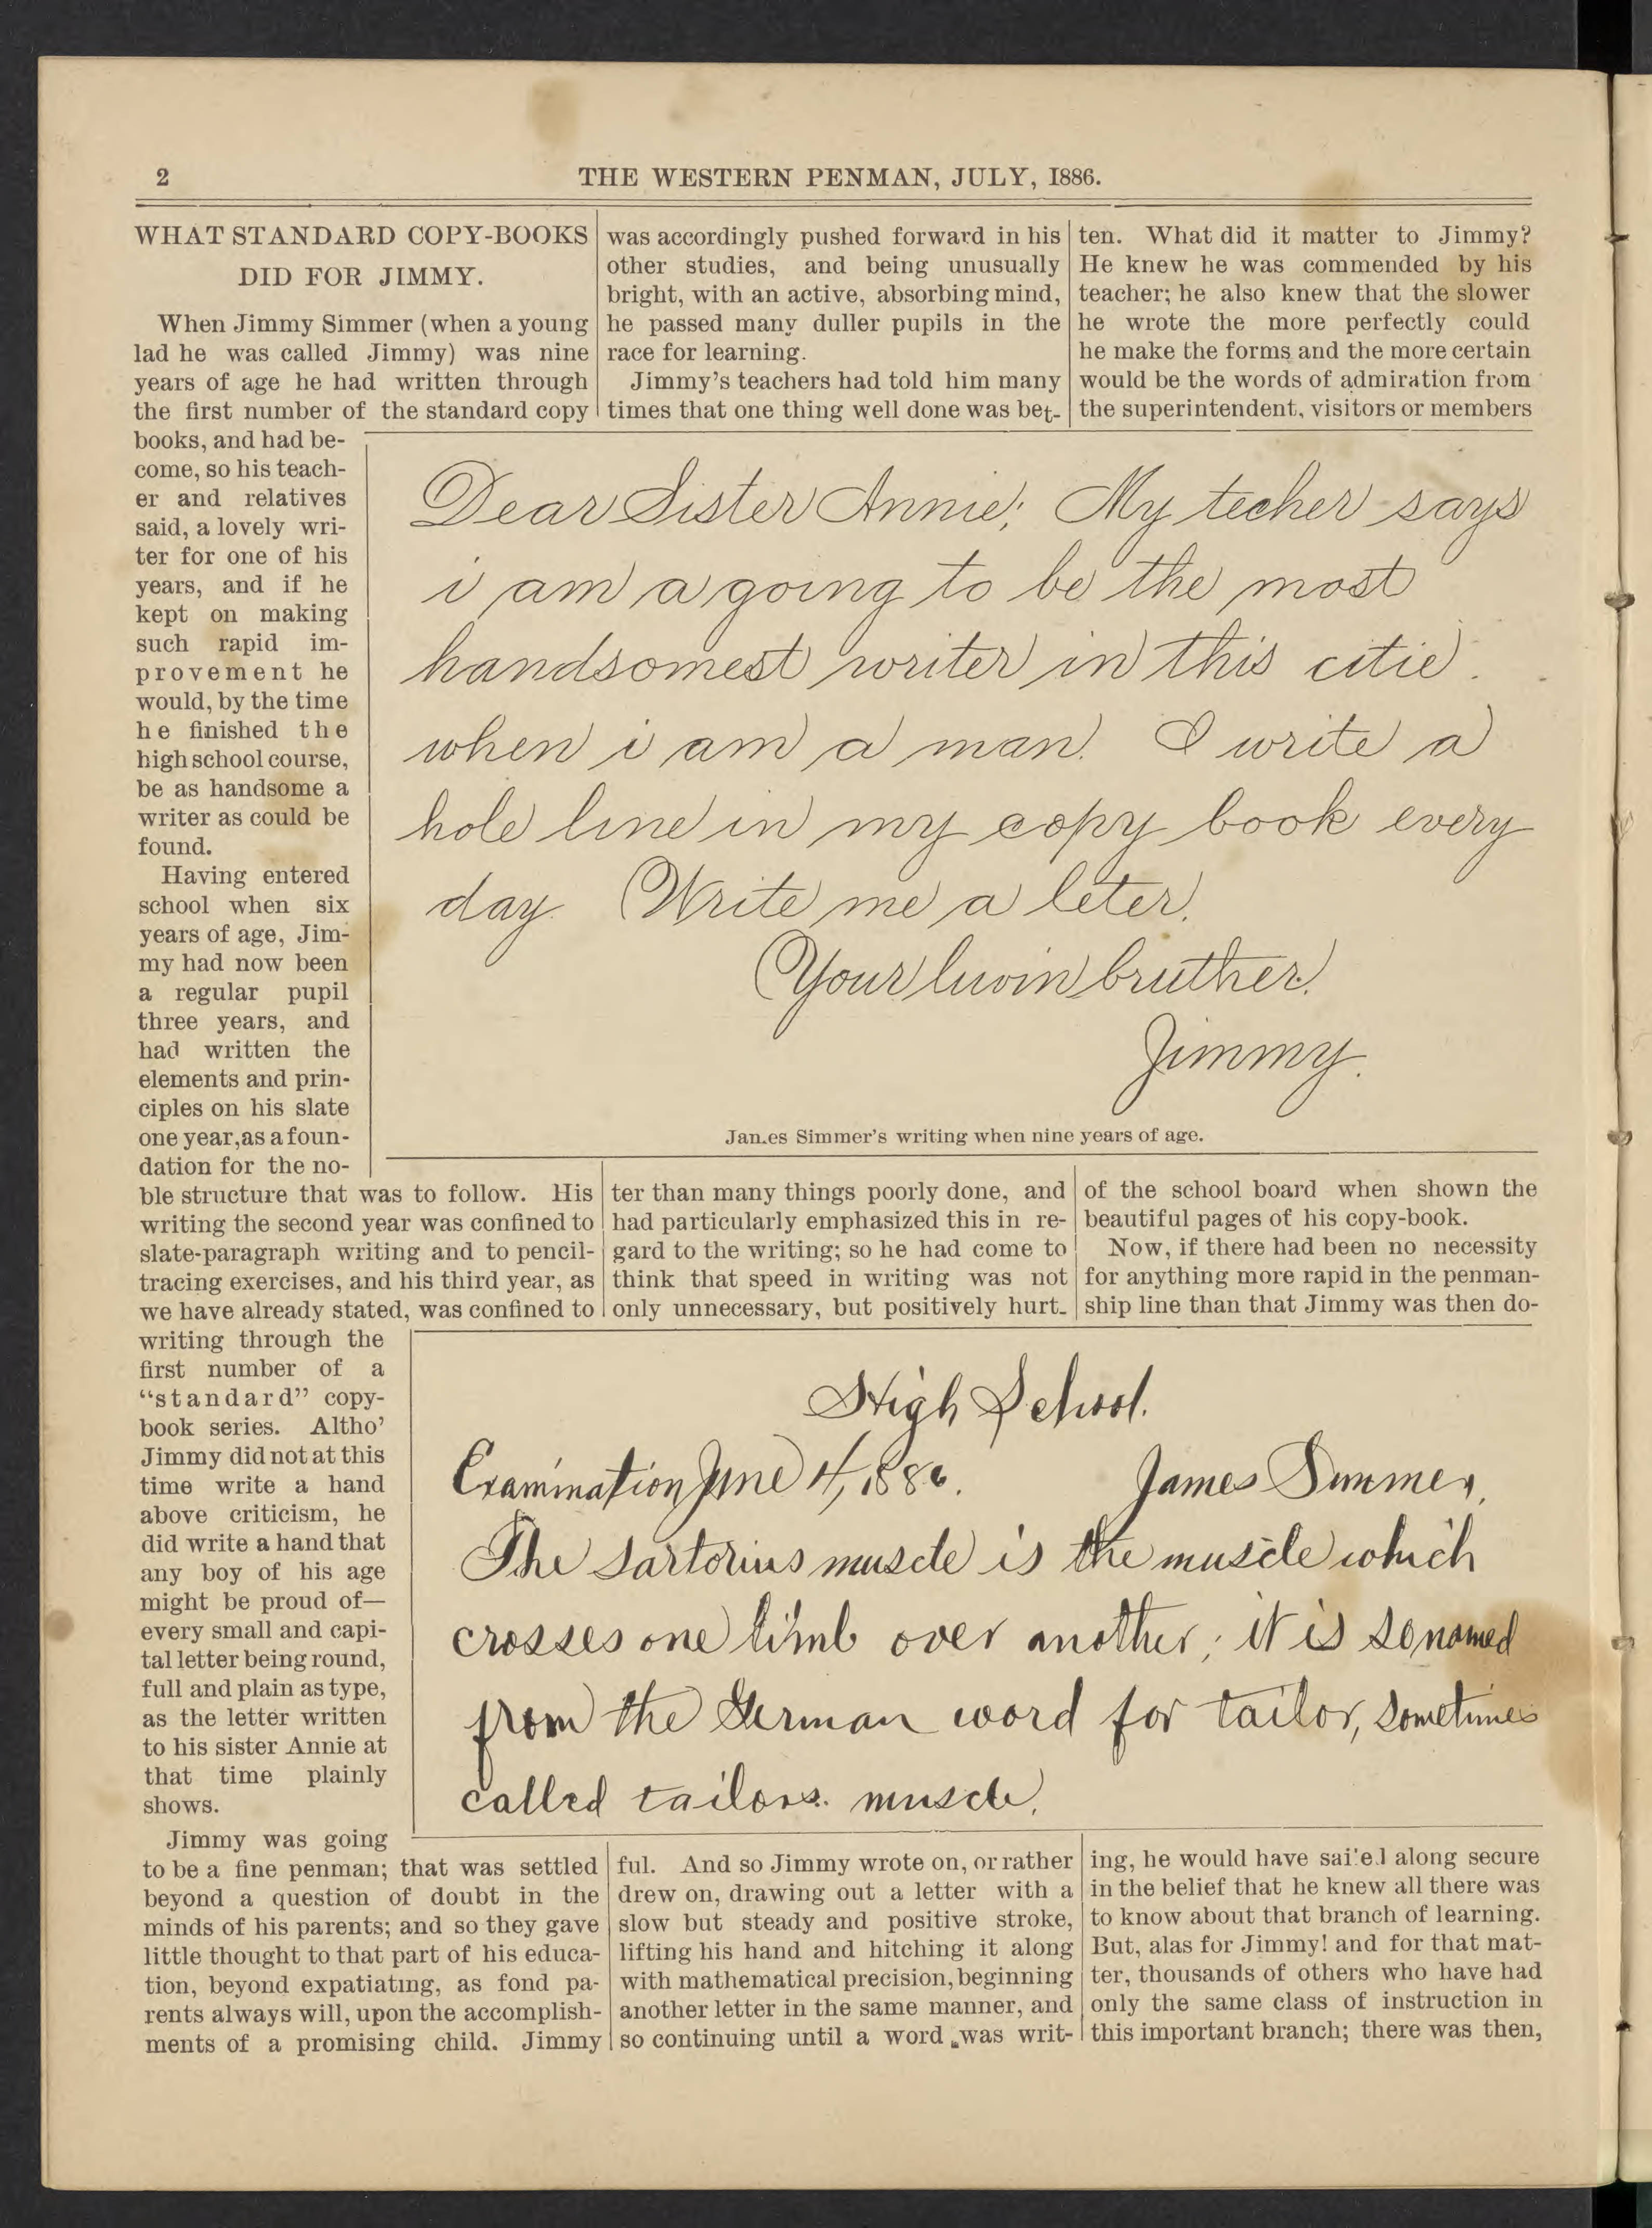 2
THE WESTERN PENMAN, JULY, 1886.
WHAT STANDARD COPY-BOOKS
DID FOR JIMMY.
When Jimmy Simmer (when a young
lad he was called Jimmy) was nine
years of age he had written through
the first number of the standard copy
books, and had be-
come, so his teach-
er and relatives
said, a lovely wri-
ter for one of his
years, and if he
kept on making
such rapid im-
provement he
would, by the time
he finished the
high school course,
be as handsome a
writer as could be
found.
Having entered
school when six
years of age, Jim-
my had now been
a regular pupil
three years, and
had written the
elements and prin-
ciples on his slate
one year, as a foun-
dation for the no-
ble structure that was to follow. His
writing the second year was confined to
slate-paragraph writing and to pencil-
tracing exercises, and his third year, as
we have already stated, was confined to
writing through the
first number of a
“standard” copy-
book series. Altho’
Jimmy did not at this
time write a hand
above criticism, he
did write a hand that
any boy of his age
might be proud of—
every small and capi-
tal letter being round,
full and plain as type,
as the letter written
to his sister Annie at
that time plainly
shows.
Jimmy was going
to be a fine penman; that was settled
beyond a question of doubt in the
minds of his parents; and so they gave
little thought to that part of his educa-
tion, beyond expatiating, as fond pa-
rents always will, upon the accomplish-
ments of a promising child. Jimmy
was accordingly pushed forward in his
other studies, and being unusually
bright, with an active, absorbing mind,
he passed many duller pupils in the
race for learning.
Jimmy’s teachers had told him many
times that one thing well done was bet-
ter than many things poorly done, and
had particularly emphasized this in re-
gard to the writing; so he had come to
think that speed in writing was not
only unnecessary, but positively hurt-
ful. And so Jimmy wrote on, or rather
drew on, drawing out a letter with a
slow but steady and positive stroke,
lifting his hand and hitching it along
with mathematical precision, beginning
another letter in the same manner, and
so continuing until a word was writ-
ten. What did it matter to Jimmy?
He knew he was commended by his
teacher; he also knew that the slower
he wrote the more perfectly could
he make the forms and the more certain
would be the words of admiration from
the superintendent, visitors or members
of the school board when shown the
beautiful pages of his copy-book.
Now, if there had been no necessity
for anything more rapid in the penman-
ship line than that Jimmy was then do-
ing, he would have sailed along secure
in the belief that he knew all there was
to know about that branch of learning.
But, alas for Jimmy! and for that mat-
ter, thousands of others who have had
only the same class of instruction in
this important branch; there was then,
Dear Sister Annie; My techer says
i am a going to be the most
handsomest writer in this citie.
when i am a man. I write a
hole line in my copy book every
day. Write me a leter.
Your luvin bruther.
Jimmy.
James Simmer's writing when nine years of age.
High School.
Examination June 4, 1886. James Simmer,
The Sartorius muscle is the muscle which
crosses one limb over another; it is so named
from the German word for tailor, sometimes
called tailors. muscle.